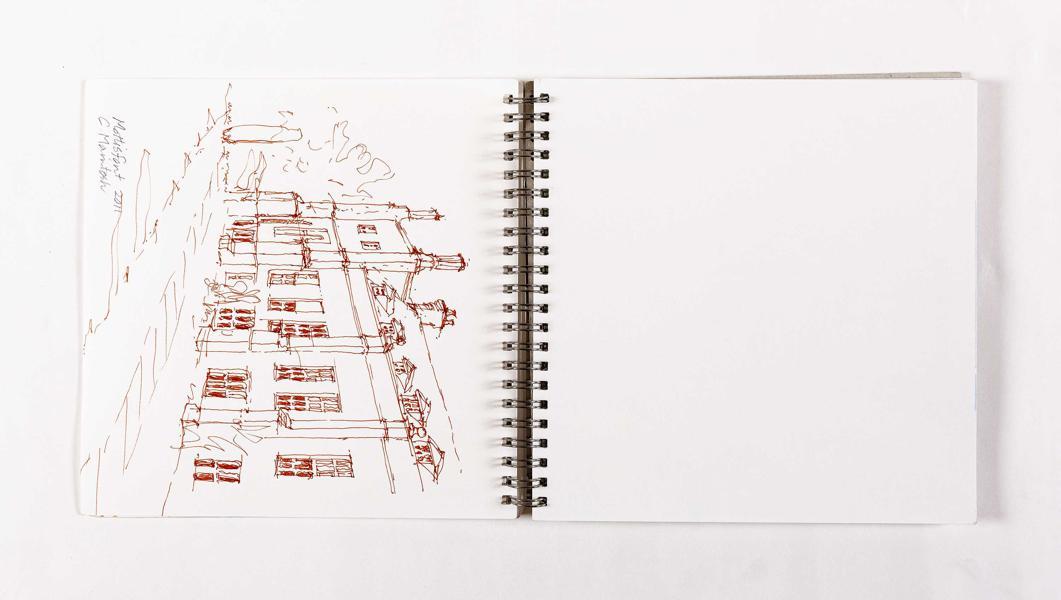 Mottisfont 2011
C Mcintosh